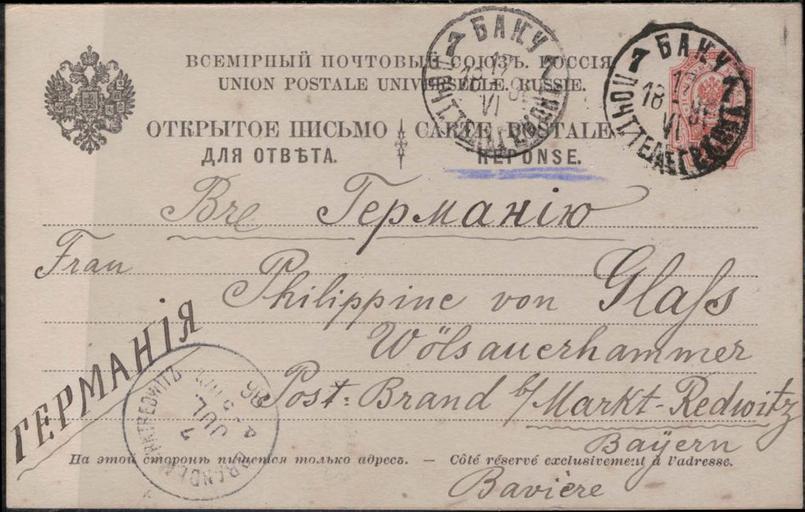 ВСЕМІРНЫЙ ПОЧТОВЫЙ СОЮЗЪ. РОССІЯ
UNION POSTALE UNIVERSELLE. RUSSIE.
ОТКРЫТОЕ ПИСЬМО CARTE POSTALE
ДЛЯ ОТВѢТА. RÉPONSE.
БАКУ
18 VI
БАКУ
18 VI
Вге Германію
Frau
Philippine von Glaſs
Wölsauerhammer
Post: Brand b/ Markt-Redwitz
Bayern
Bavière
ГЕРМАНІЯ
7 JUL 96
На этой сторонѣ пишется только адресъ. — Côté réservé exclusivement à l'adresse.